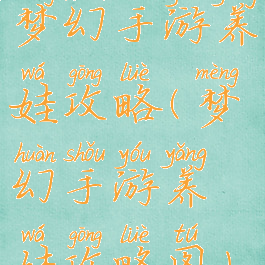 梦幻手游养
wá gōng lüè mèng
娃攻略(梦
huàn shǒu yóu yǎng
幻手游养
wá gōng lüè tú
娃攻略图)